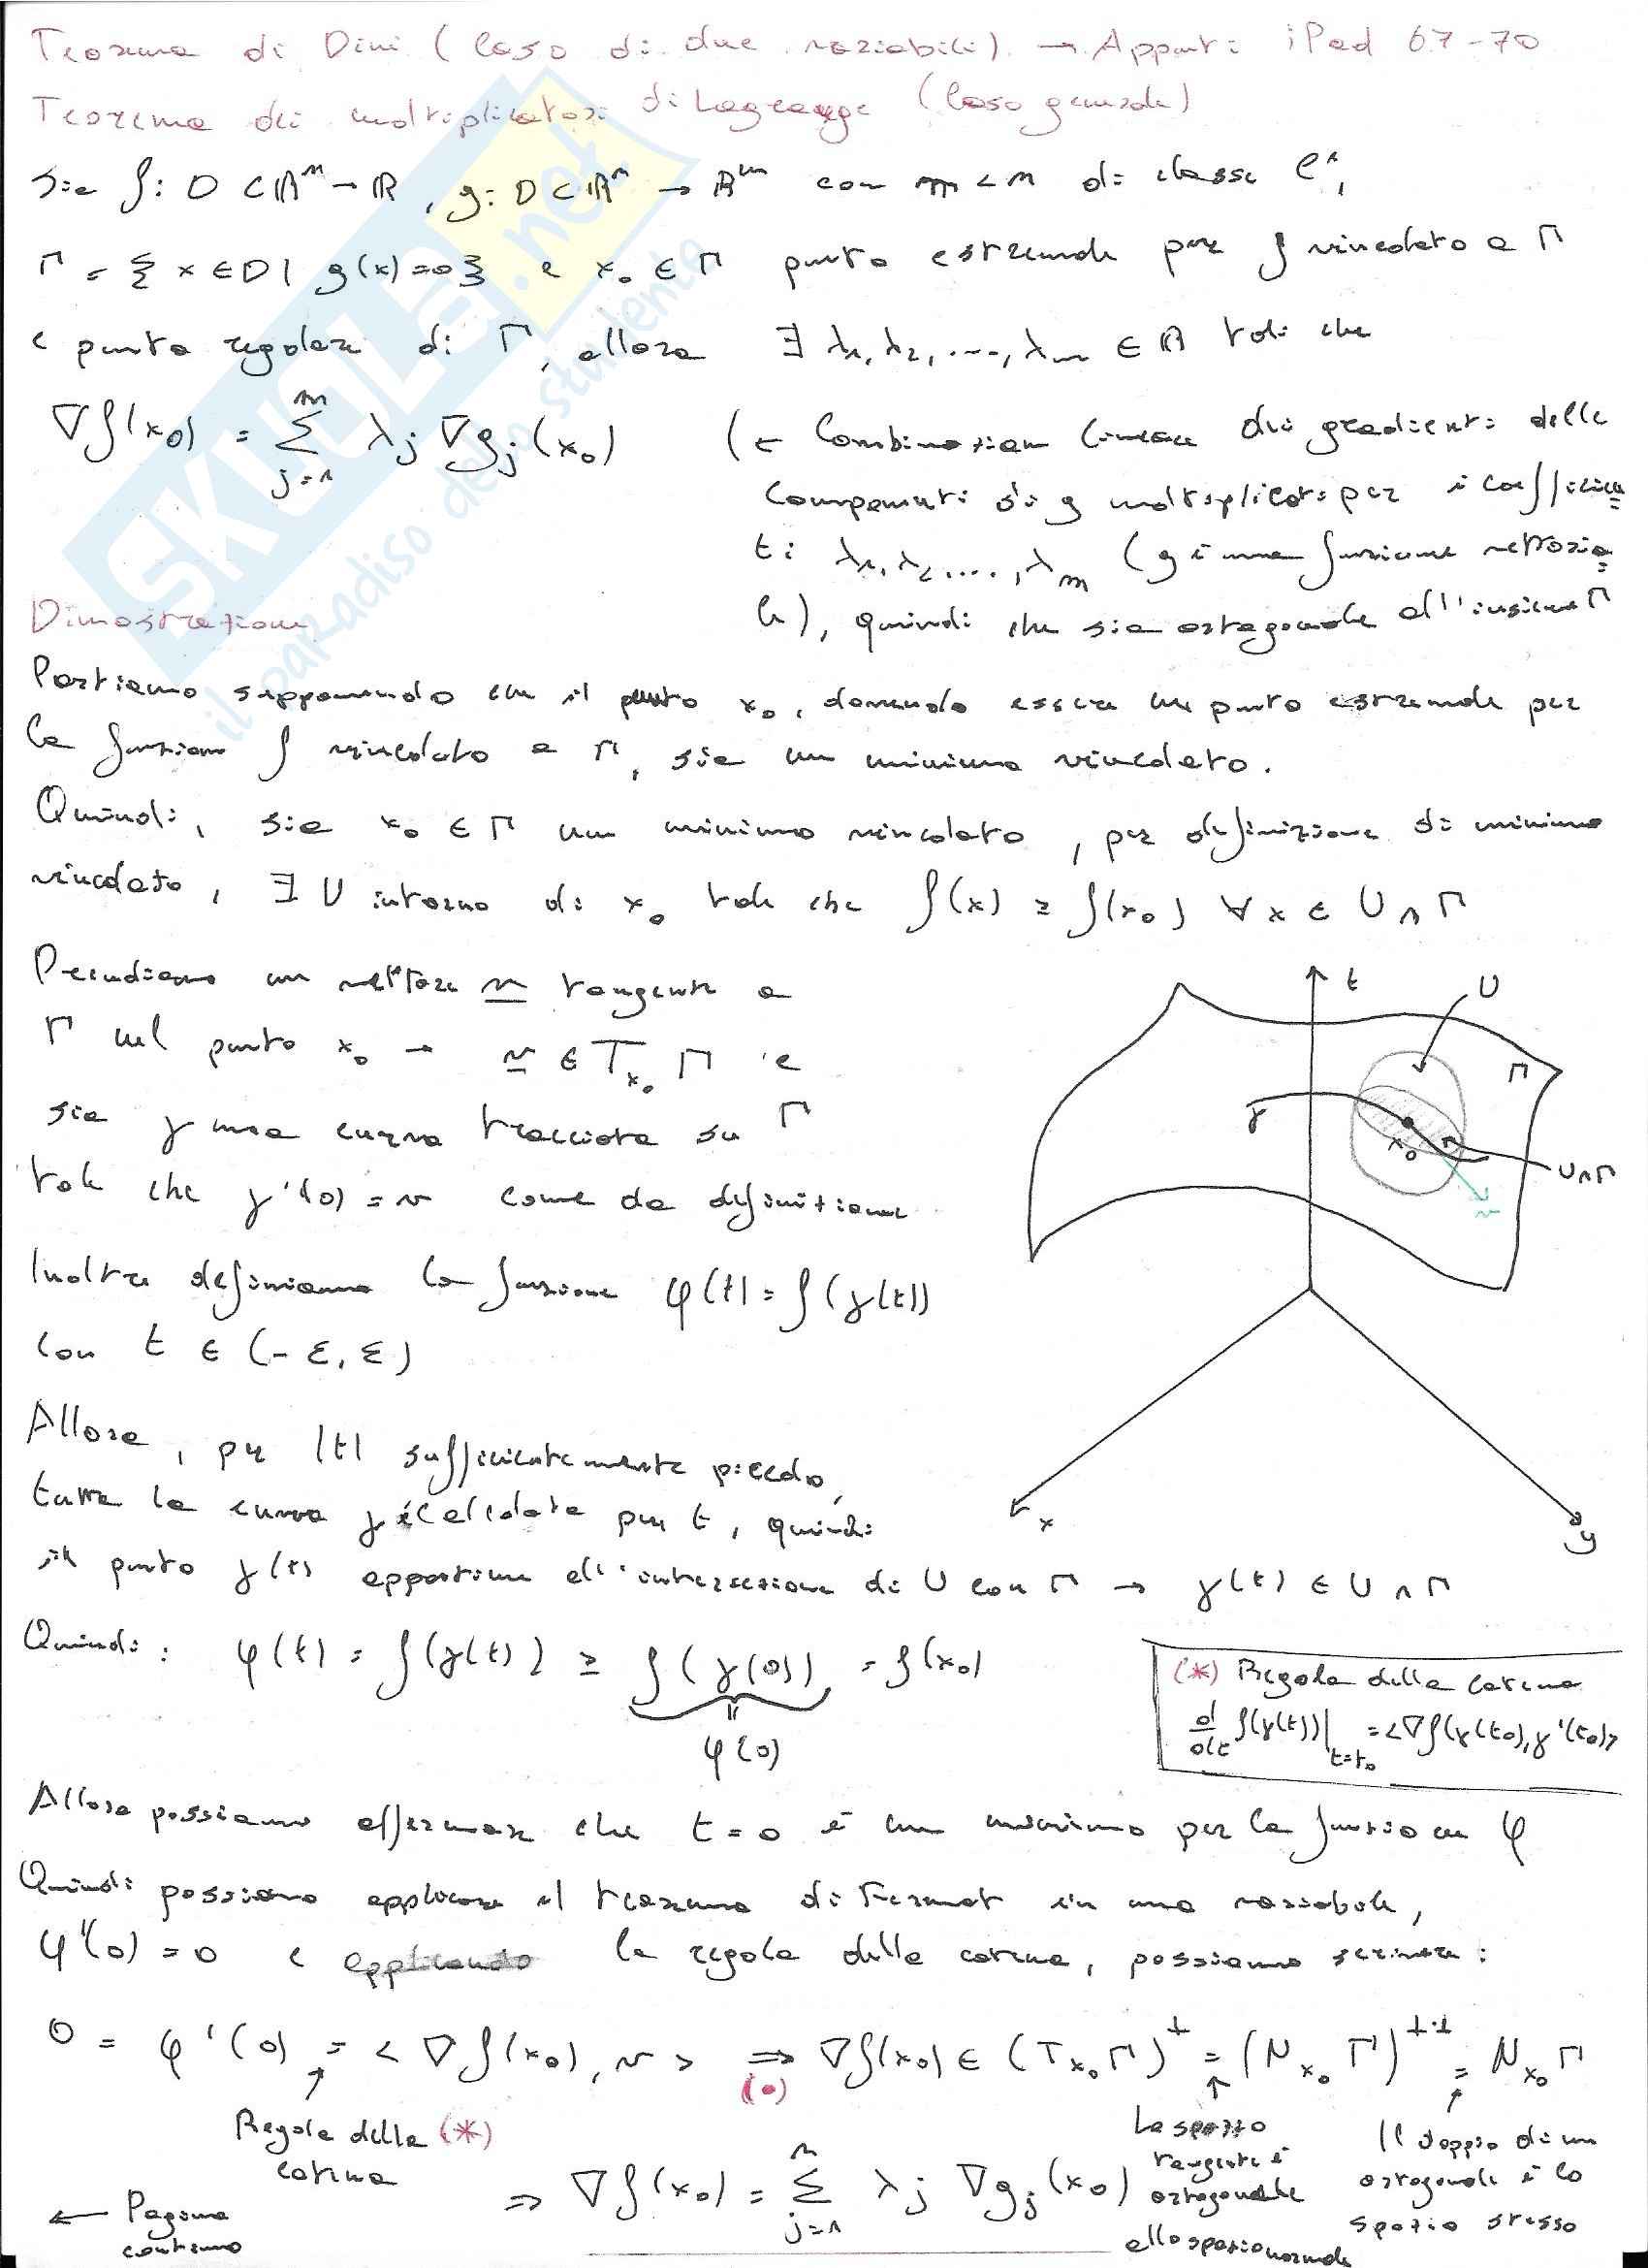 Teorema di Dini (Caso di due variabili) → Appunti iPad 67-70
Teorema dei moltiplicatori di Lagrange (Caso generale)
Sia f: D ⊂ ℝⁿ → ℝ, g: D ⊂ ℝⁿ → ℝᵐ con m < n di classe C¹,
Γ = { x ∈ D | g(x) = 0 } e x₀ ∈ Γ punto estremale per f vincolato a Γ
e punto regolare di Γ, allora ∃ λ₁, λ₂, ..., λₘ ∈ ℝ tali che
∇f(x₀) = Σ_{j=1}^{m} λⱼ ∇gⱼ(x₀) (← Combinazione lineare dei gradienti delle
componenti di g moltiplicati per i coefficien=
ti λ₁, λ₂, ..., λₘ (g è una funzione vettoria=
le), quindi che sia ortogonale all'insieme Γ
Dimostrazione
Partiamo supponendo che il punto x₀, dovendo essere un punto estremale per
la funzione f vincolato a Γ, sia un minimo vincolato.
Quindi, sia x₀ ∈ Γ un minimo vincolato, per definizione di minimo
vincolato, ∃ U intorno di x₀ tale che f(x) ≥ f(x₀) ∀ x ∈ U ∩ Γ
Prendiamo un vettore v tangente a
Γ nel punto x₀ → v ∈ T_{x₀} Γ e
sia γ una curva tracciata su Γ
tale che γ'(0) = v come da definizione
Inoltre definiamo la funzione φ(t) = f(γ(t))
con t ∈ (-ε, ε)
t
U
Γ
γ
x₀
U∩Γ
v
x
y
Allora, per |t| sufficientemente piccolo,
tutta la curva γ è calcolata per t, quindi
il punto γ(t) appartiene all'intersezione di U con Γ → γ(t) ∈ U ∩ Γ
Quindi: φ(t) = f(γ(t)) ≥ f(γ(0)) = f(x₀)
φ(0)
(*) Regola della catena
d/dt f(γ(t))|_{t=t₀} = <∇f(γ(t₀)), γ'(t₀)>
Allora possiamo affermare che t = 0 è un minimo per la funzione φ
Quindi possiamo applicare il teorema di Fermat in una variabile,
φ'(0) = 0 e applicando la regola della catena, possiamo scrivere:
0 = φ'(0) = <∇f(x₀), v> ⇒ ∇f(x₀) ∈ (T_{x₀}Γ)^⊥ = (N_{x₀} Γ)^{⊥⊥} = N_{x₀} Γ
(•)
Regola della (*)
catena
Lo spazio
tangente è
ortogonale
allo spazio normale
Il doppio di un
ortogonale è lo
spazio stesso
⇒ ∇f(x₀) = Σ_{j=1}^{m} λⱼ ∇gⱼ(x₀)
← Pagina
SKUOLA.net
il paradiso dello studente